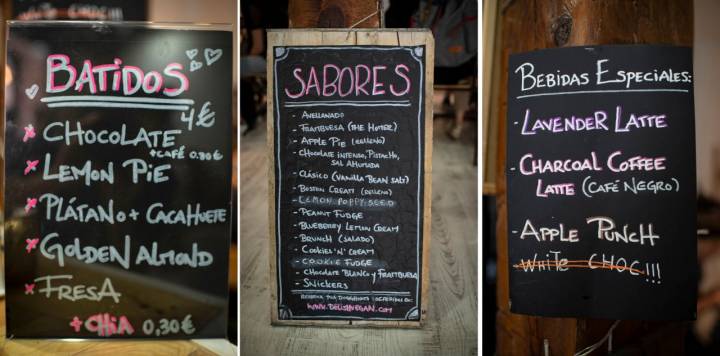 BATIDOS
4€
× CHOCOLATE
+CAFÉ 0.80€
× LEMON PIE
× PLÁTANO + CACAHUETE
× GOLDEN ALMOND
× FRESA
+ CHIA 0,30€
SABORES
- AVELLANADO
- FRAMBUESA (THE HOMER)
- APPLE PIE (RELLENO)
- CHOCOLATE INTENSO, PISTACHO,
SAL AHUMADA
- CLÁSICO (VANILLA BEAN SALT)
- BOSTON CREAM (RELLENO)
- LEMON POPPY SEED
- PEANUT FUDGE
- BLUEBERRY LEMON CREAM
- BRUNCH (SALADO)
- COOKIES 'N' CREAM
- COOKIE FUDGE
- CHOCOLATE BLANCO Y FRAMBUESA
- SNICKERS
RESERVA TUS DOUGHNUTS
WWW.DELISHVEGAN.COM
BEBIDAS ESPECIALES:
- LAVENDER LATTE
- CHARCOAL COFFEE
LATTE (CAFÉ NEGRO)
- APPLE PUNCH
- WHITE CHOC!!!